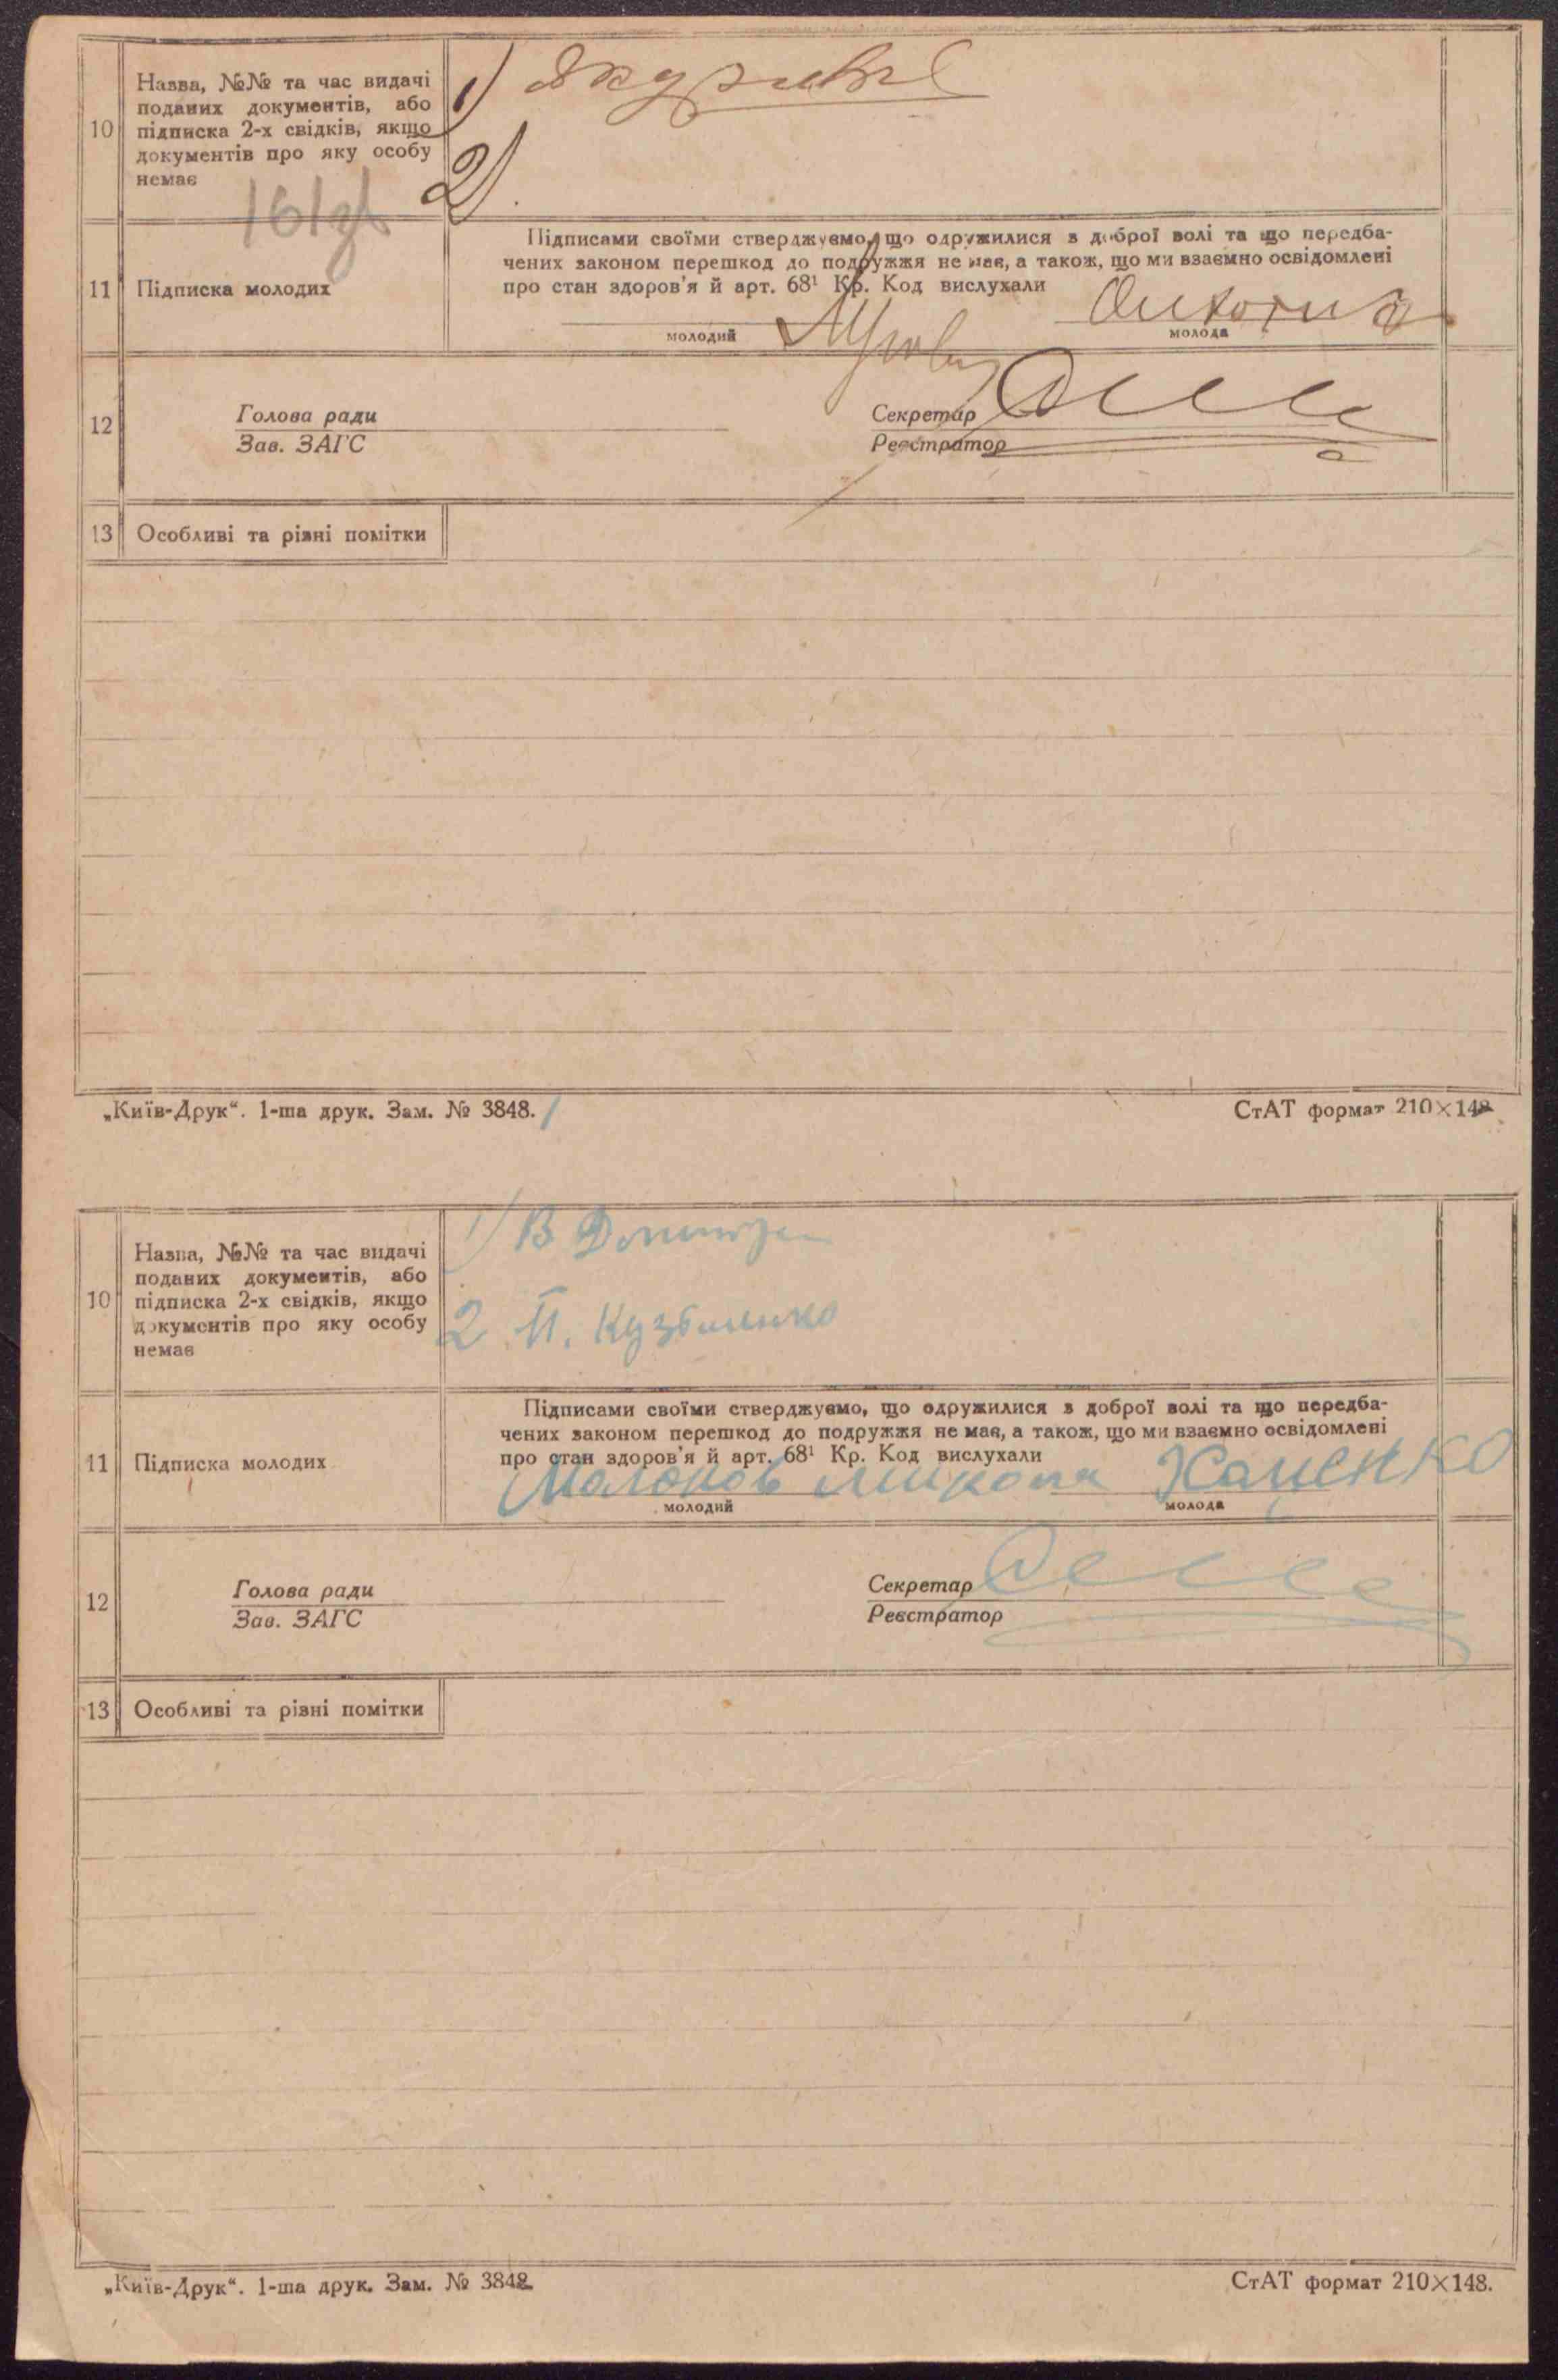 10
Назва, №№ та час видачі
поданих документів, або
підписка 2-х свідків, якщо
документів про яку особу
немає
1)
2)
161
11
Підписка молодих
Підписами своїми стверджуємо, що одружилися з доброї волі та що передба-
чених законом перешкод до подружжя не має, а також, що ми взаємно освідомлені
про стан здоров'я й арт. 68¹ Кр. Код вислухали
молодий
молода
12
Голова ради
Зав. ЗАГС
Секретар
Реєстратор
13
Особливі та різні помітки
„Київ-Друк“. 1-ша друк. Зам. № 3848.
СтАТ формат 210×148
10
Назва, №№ та час видачі
поданих документів, або
підписка 2-х свідків, якщо
документів про яку особу
немає
1) В
2 П. Кузьменко
11
Підписка молодих
Підписами своїми стверджуємо, що одружилися з доброї волі та що передба-
чених законом перешкод до подружжя не має, а також, що ми взаємно освідомлені
про стан здоров'я й арт. 68¹ Кр. Код вислухали
Каценко
молодий
молода
12
Голова ради
Зав. ЗАГС
Секретар
Реєстратор
13
Особливі та різні помітки
„Київ-Друк“. 1-ша друк. Зам. № 3848.
СтАТ формат 210×148.